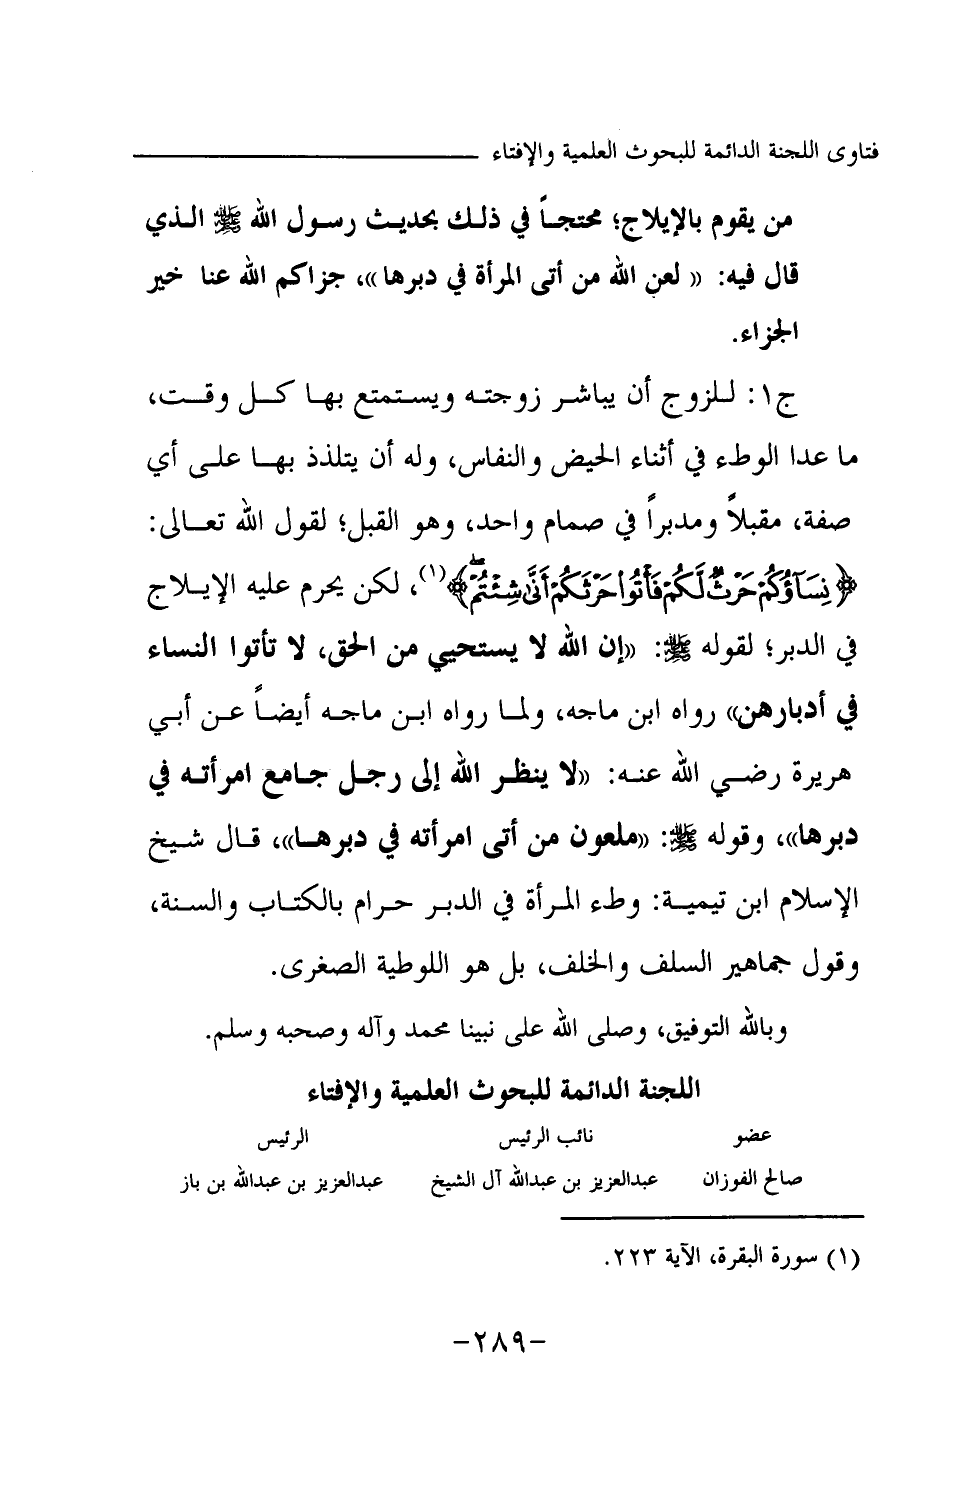 فتاوى اللجنة الدائمة للبحوث العلمية والإفتاء
من يقوم بالإيلاج؛ محتجاً في ذلك بحديث رسول الله ﷺ الذي
قال فيه: «لعن الله من أتى المرأة في دبرها»، جزاكم الله عنا خير
الجزاء.
ج١: للزوج أن يباشر زوجته ويستمتع بها كل وقت،
ما عدا الوطء في أثناء الحيض والنفاس، وله أن يتلذذ بها على أي
صفة، مقبلاً ومدبراً في صمام واحد، وهو القبل؛ لقول الله تعالى:
﴿نِسَآؤُكُمْ حَرْثٌ لَّكُمْ فَأْتُوا۟ حَرْثَكُمْ أَنَّىٰ شِئْتُمْ ۖ﴾(١)، لكن يحرم عليه الإيلاج
في الدبر؛ لقوله ﷺ: «إن الله لا يستحيي من الحق، لا تأتوا النساء
في أدبارهن» رواه ابن ماجه، ولما رواه ابن ماجه أيضاً عن أبي
هريرة رضي الله عنه: «لا ينظر الله إلى رجل جامع امرأته في
دبرها»، وقوله ﷺ: «ملعون من أتى امرأته في دبرها»، قال شيخ
الإسلام ابن تيمية: وطء المرأة في الدبر حرام بالكتاب والسنة،
وقول جماهير السلف والخلف، بل هو اللوطية الصغرى.
وبالله التوفيق، وصلى الله على نبينا محمد وآله وصحبه وسلم.
اللجنة الدائمة للبحوث العلمية والإفتاء
عضو نائب الرئيس الرئيس
صالح الفوزان عبدالعزيز بن عبدالله آل الشيخ عبدالعزيز بن عبدالله بن باز
(١) سورة البقرة، الآية ٢٢٣.
-٢٨٩-